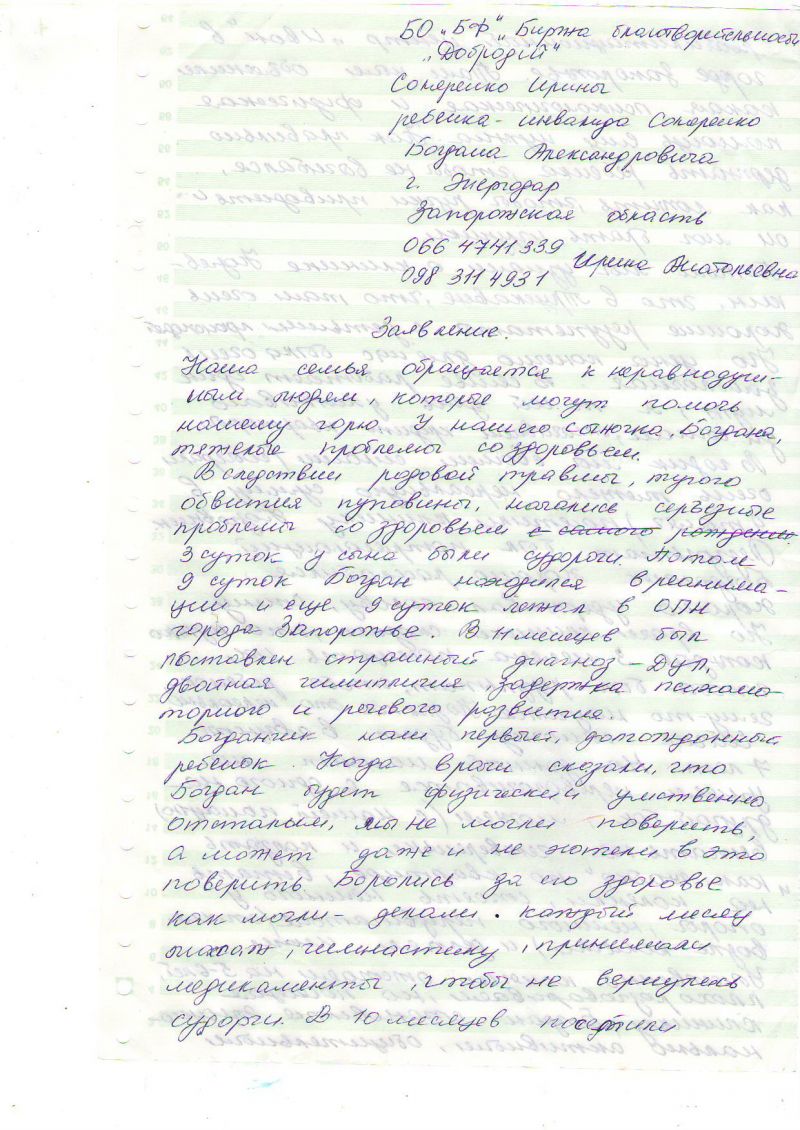 БО „БФ" „Биржа благотворительности
„Добродій"
Сокиренко Ирины
ребенка-инвалида Сокиренко
Богдана Александровича
г. Энергодар
Запорожская область
066 4741 339
098 311 4931 Ирина Анатольевна
Заявление.
Наша семья обращается к неравнодуш-
ным людям, которые могут помочь
нашему горю. У нашего сыночка, Богдана,
тяжелые проблемы со здоровьем.
Вследствии родовой травмы, тугого
обвития пуповины, начались серьезные
проблемы со здоровьем с самого рождения.
3 суток у сына были судороги. Потом
9 суток Богдан находился в реанима-
ции и еще 9 суток лежал в ОПН
города Запорожье. В 11 месяцев был
поставлен страшный диагноз - ДЦП,
двойная гемиплегия, задержка психомо-
торного и речевого развития.
Богданчик наш первый, долгожданный
ребенок. Когда врачи сказали, что
Богдан будет физический умственно
отсталым, мы не могли поверить,
а может даже и не хотели в это
поверить. Боролись за его здоровье
как могли - делали каждый месяц
массаж, гимнастику, принимали
медикаменты, чтобы не вернулись
судорги. В 10 месяцев посетили